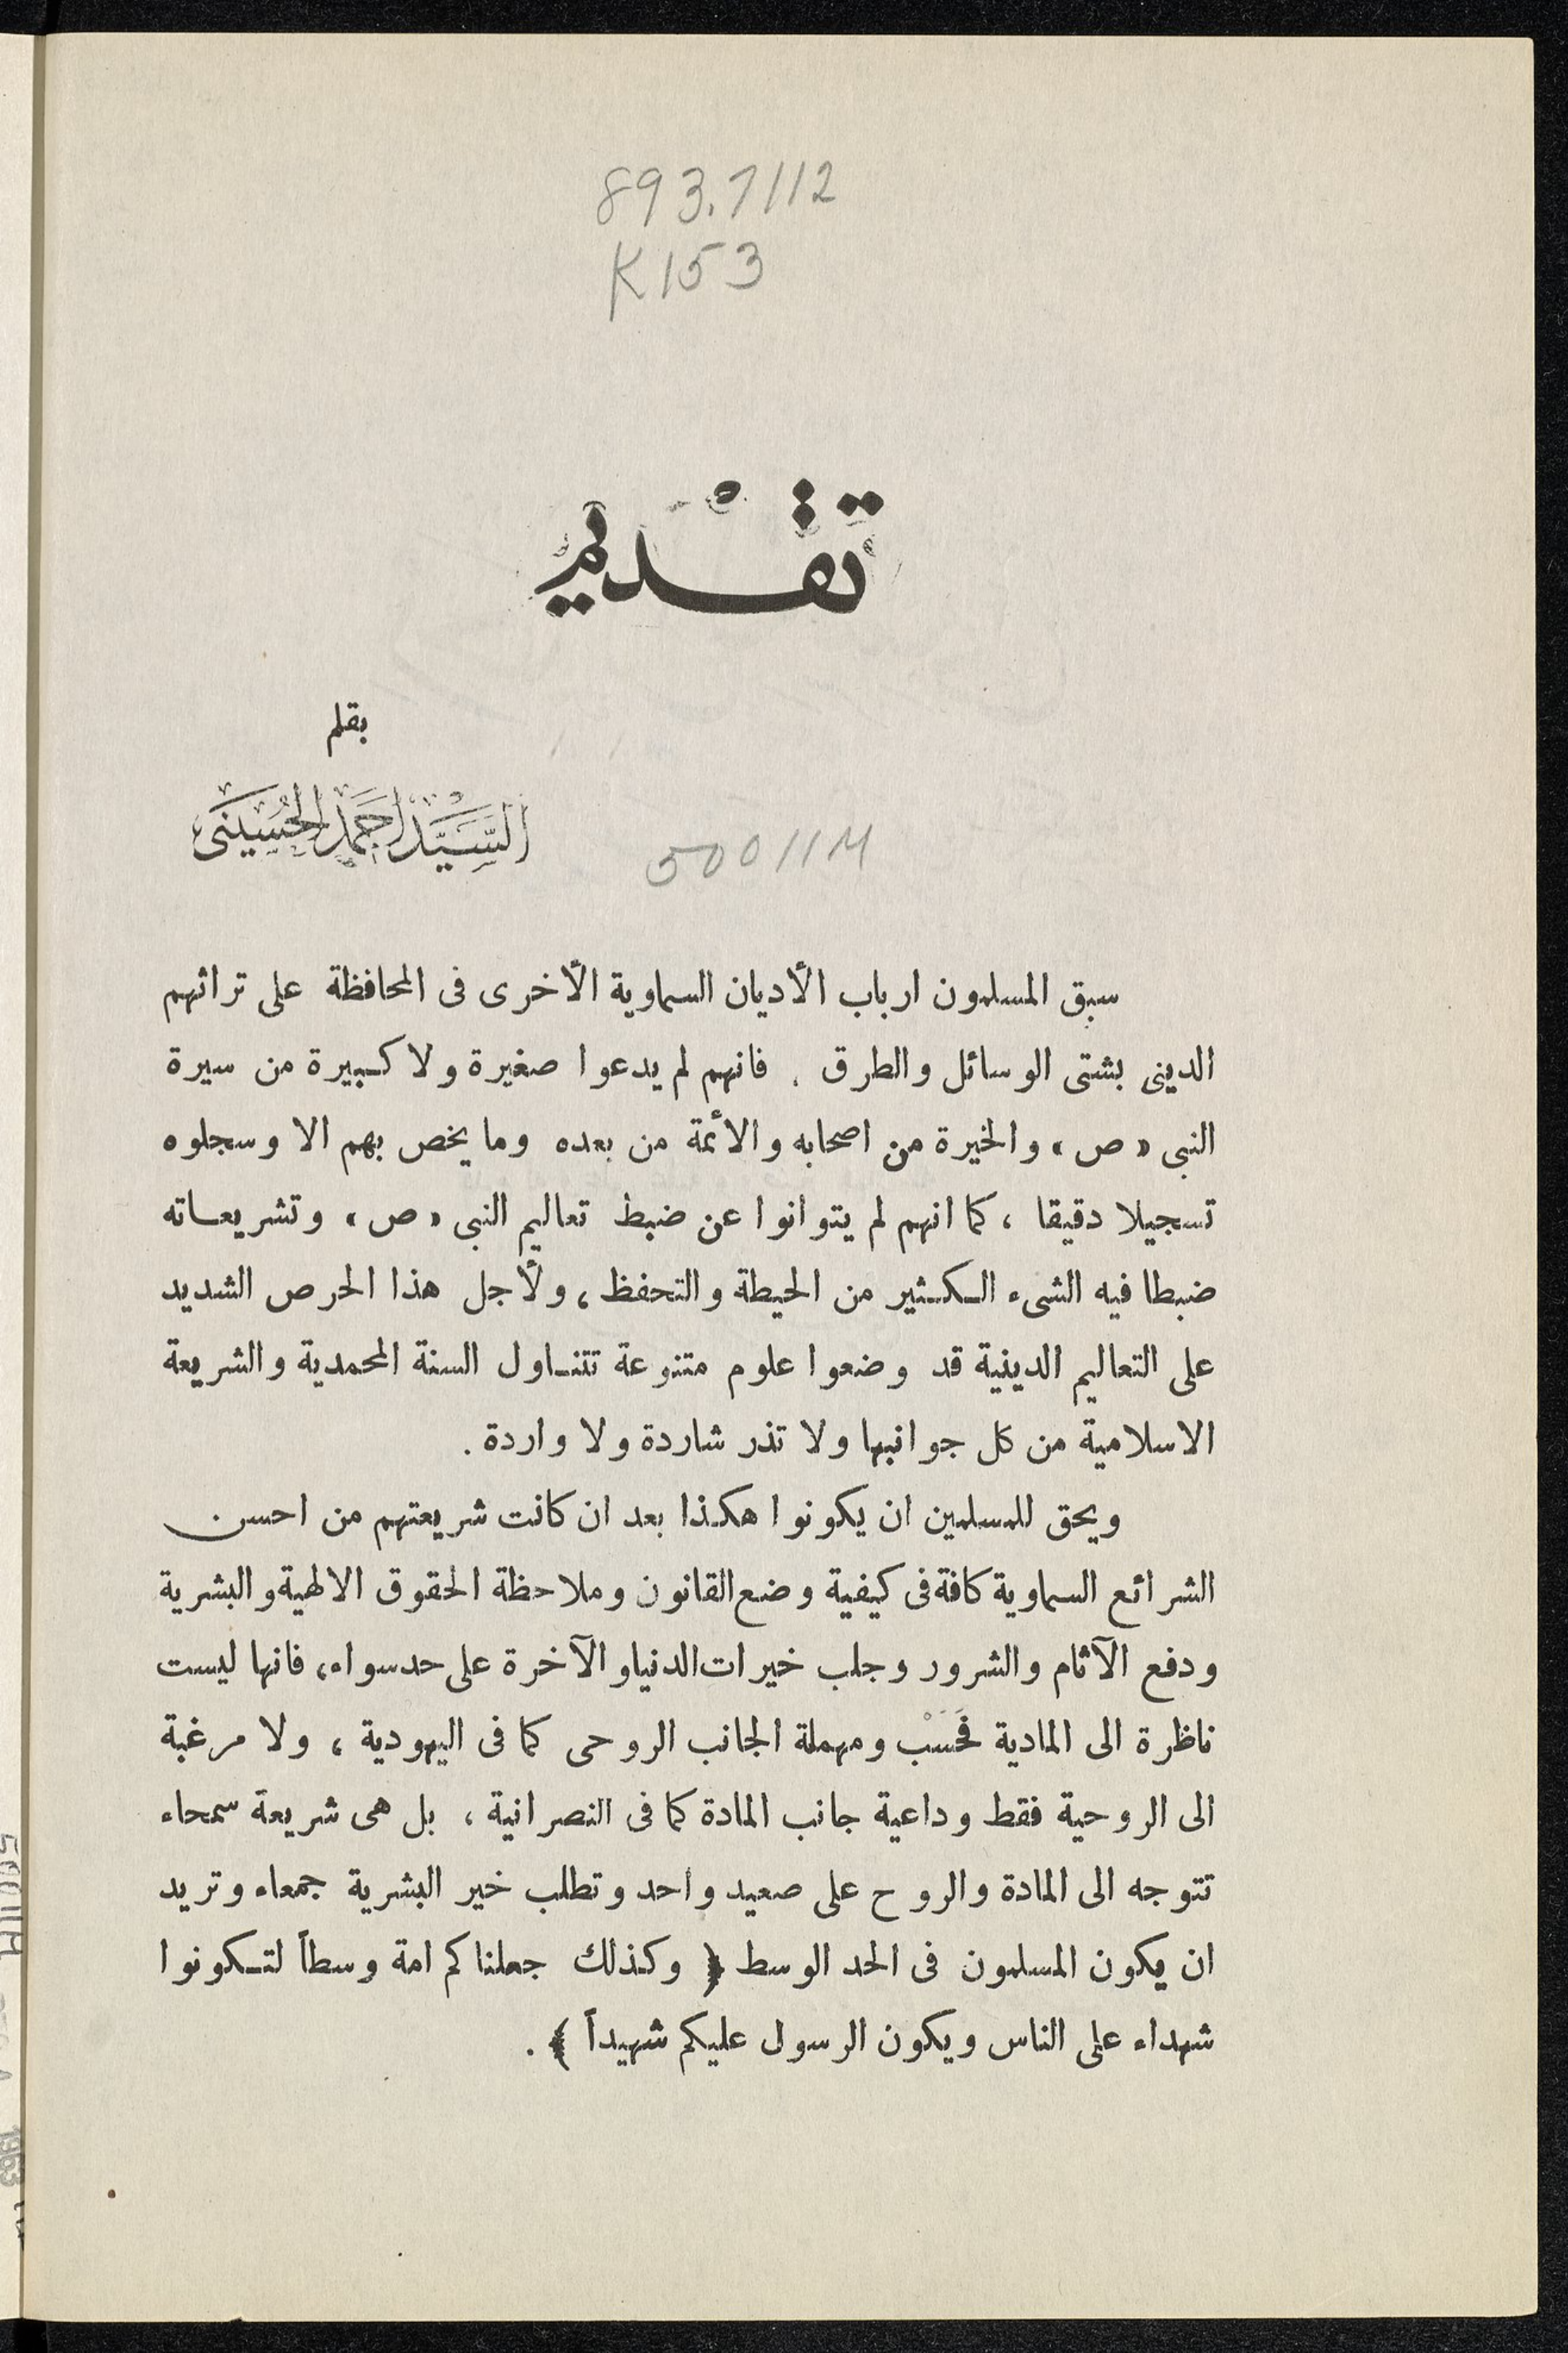 893.7112
K153
تقْديم
بقلم
السَّيِّد أحمَد الحُسَيني
50011M
سبق المسلمون ارباب الأديان السماوية الأخرى فى المحافظة على تراثهم
الدينى بشتى الوسائل والطرق . فانهم لم يدعوا صغيرة ولا كبيرة من سيرة
النبى « ص » والخيرة من اصحابه والأئمة من بعده وما يخص بهم الا وسجلوه
تسجيلا دقيقا ، كما انهم لم يتوانوا عن ضبط تعاليم النبى « ص » وتشريعاته
ضبطا فيه الشىء الكثير من الحيطة والتحفظ ، ولأجل هذا الحرص الشديد
على التعاليم الدينية قد وضعوا علوم متنوعة تتناول السنة المحمدية والشريعة
الاسلامية من كل جوانبها ولا تذر شاردة ولا واردة .
ويحق للمسلمين ان يكونوا هكذا بعد ان كانت شريعتهم من احسن
الشرائع السماوية كافة فى كيفية وضع القانون وملاحظة الحقوق الالهية والبشرية
ودفع الآثام والشرور وجلب خيرات الدنيا والآخرة على حد سواء ، فانها ليست
ناظرة الى المادية فَحَسْب ومهملة الجانب الروحى كما فى اليهودية ، ولا مرغبة
الى الروحية فقط وداعية جانب المادة كما فى النصرانية ، بل هى شريعة سمحاء
تتوجه الى المادة والروح على صعيد واحد وتطلب خير البشرية جمعاء وتريد
ان يكون المسلمون فى الحد الوسط ﴿ وكذلك جعلناكم امة وسطاً لتكونوا
شهداء على الناس ويكون الرسول عليكم شهيداً ﴾ .